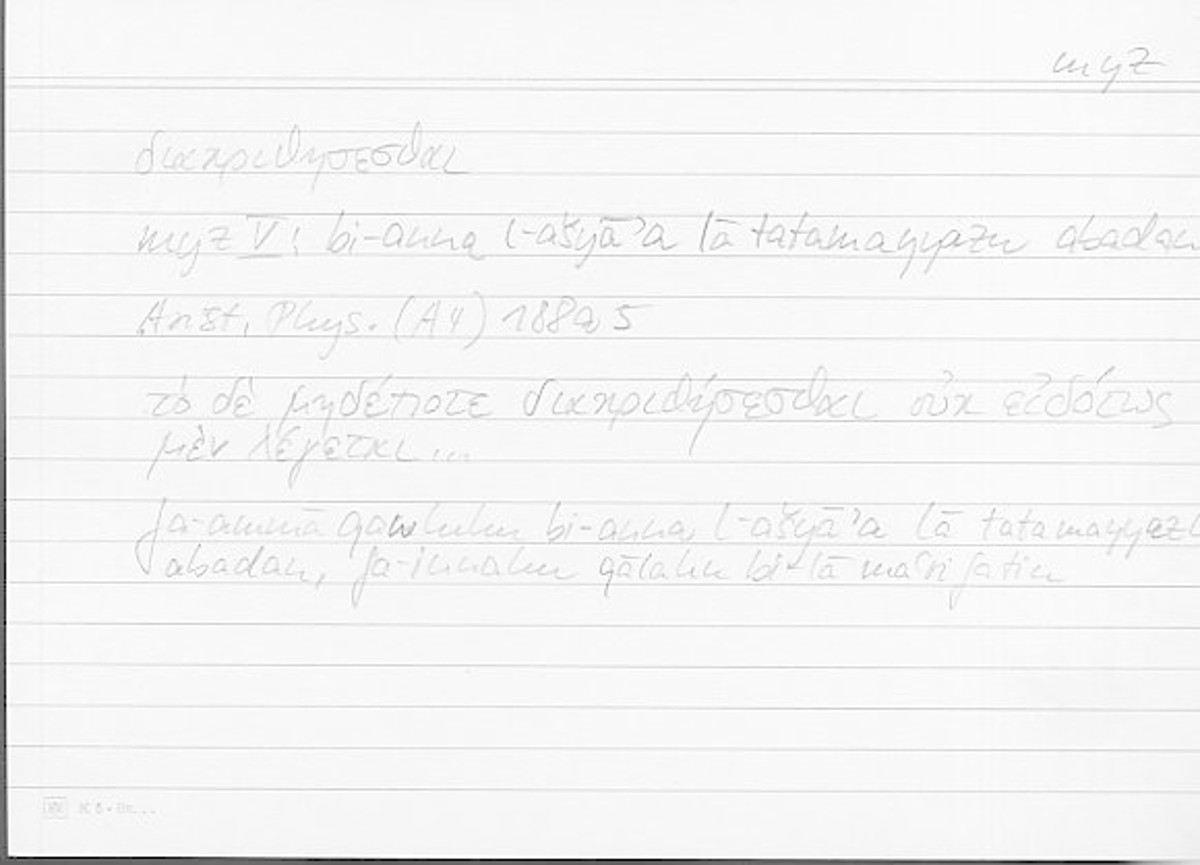 myz
διακριθησεσθαι
myz V: bi-anna l-ašyāʾa lā tatamayyazu abadan
Arist. Phys. (A4) 188a5
τὸ δὲ μηδέποτε διακριθήσεσθαι οὐκ εἰδότως
μὲν λέγεται...
fa-ammā qawluhu bi-anna l-ašyāʾa lā tatamayyazu
abadan, fa-innahu qālahu bi-lā maʿrifatin